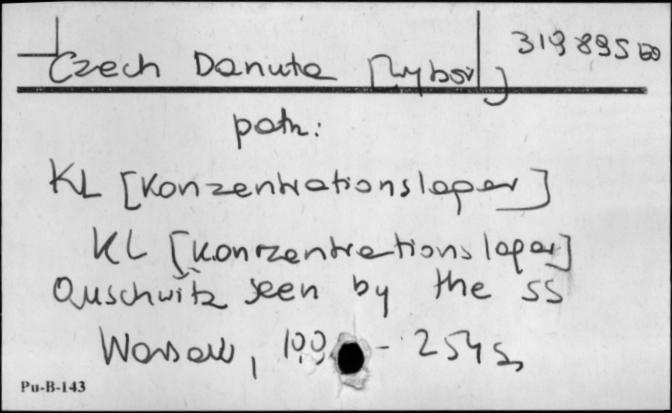 Czech Danuta [Wybór] 319895
patrz:
KL [Konzentrationslager]
KL [Konzentrationslager]
Auschwitz seen by the SS
Warsaw, - 254 s,
Pu-B-143